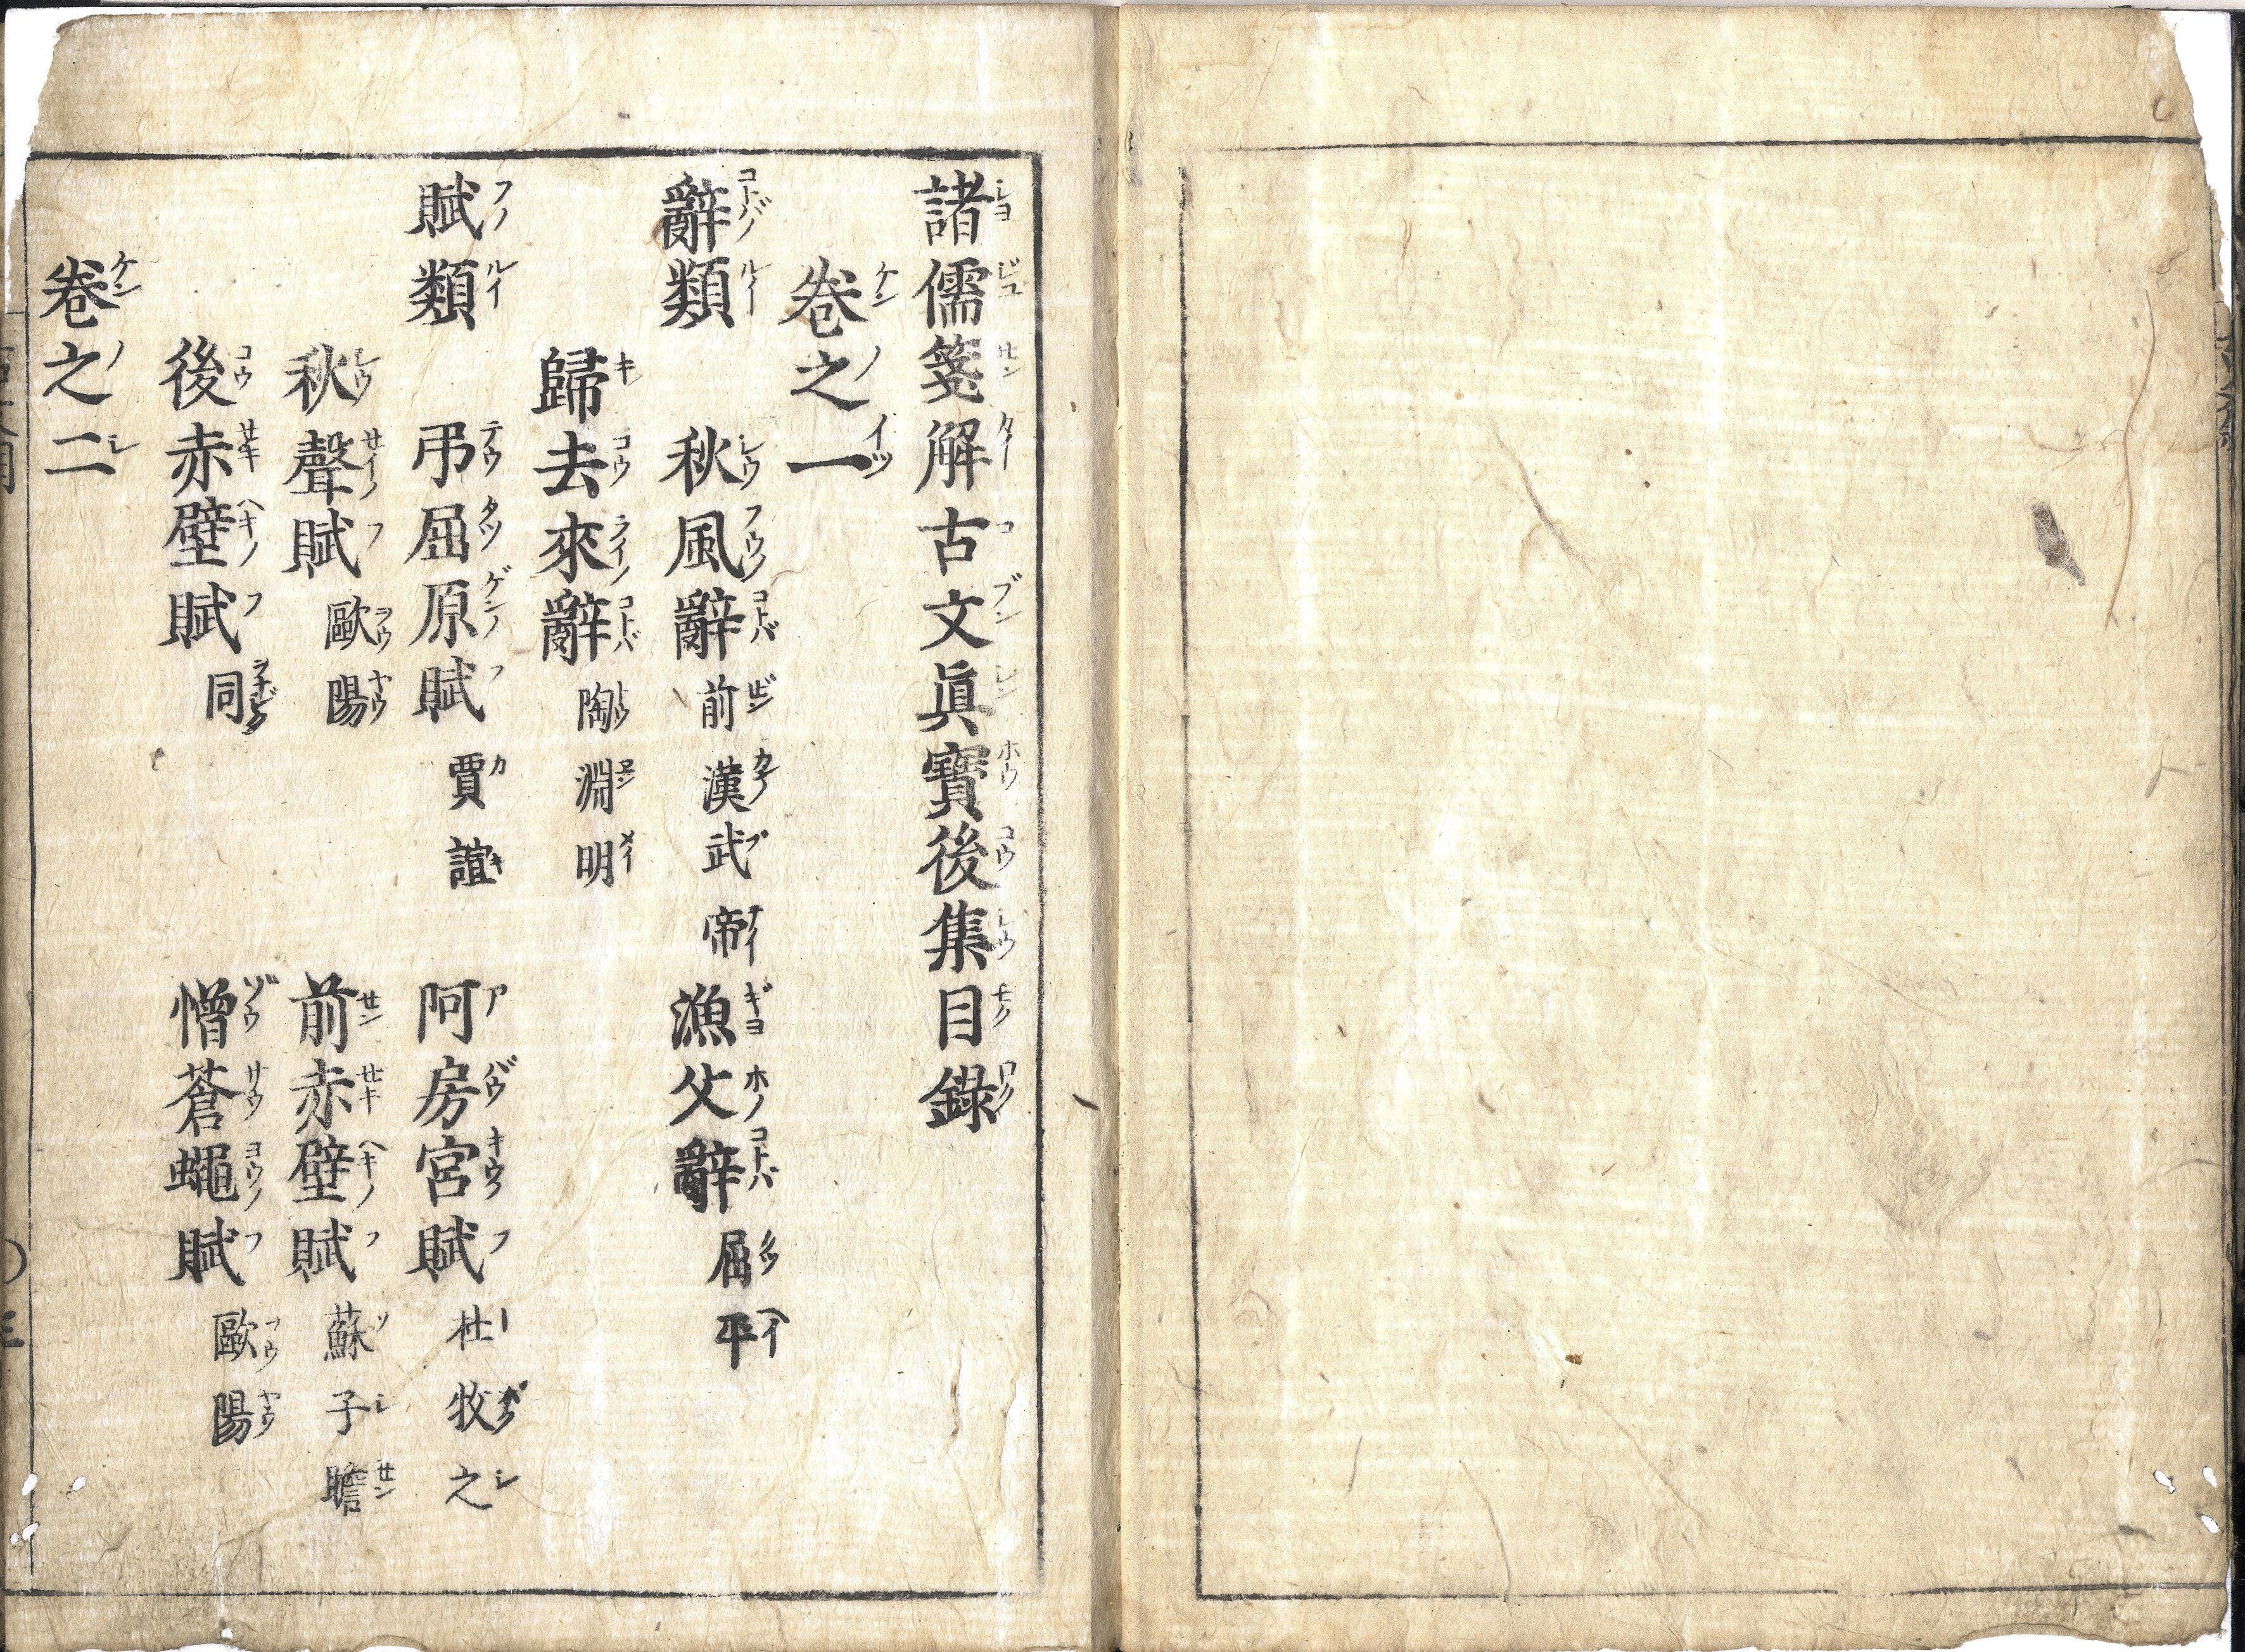 諸儒箋解古文眞寶後集目錄
卷之一
辭類　秋風辭　前漢武帝　漁父辭　屈平
歸去來辭　陶淵明
賦類　弔屈原賦　賈誼　阿房宮賦　杜牧之
秋聲賦　歐陽　前赤壁賦　蘇子瞻
後赤壁賦　同　憎蒼蠅賦　歐陽
卷之二